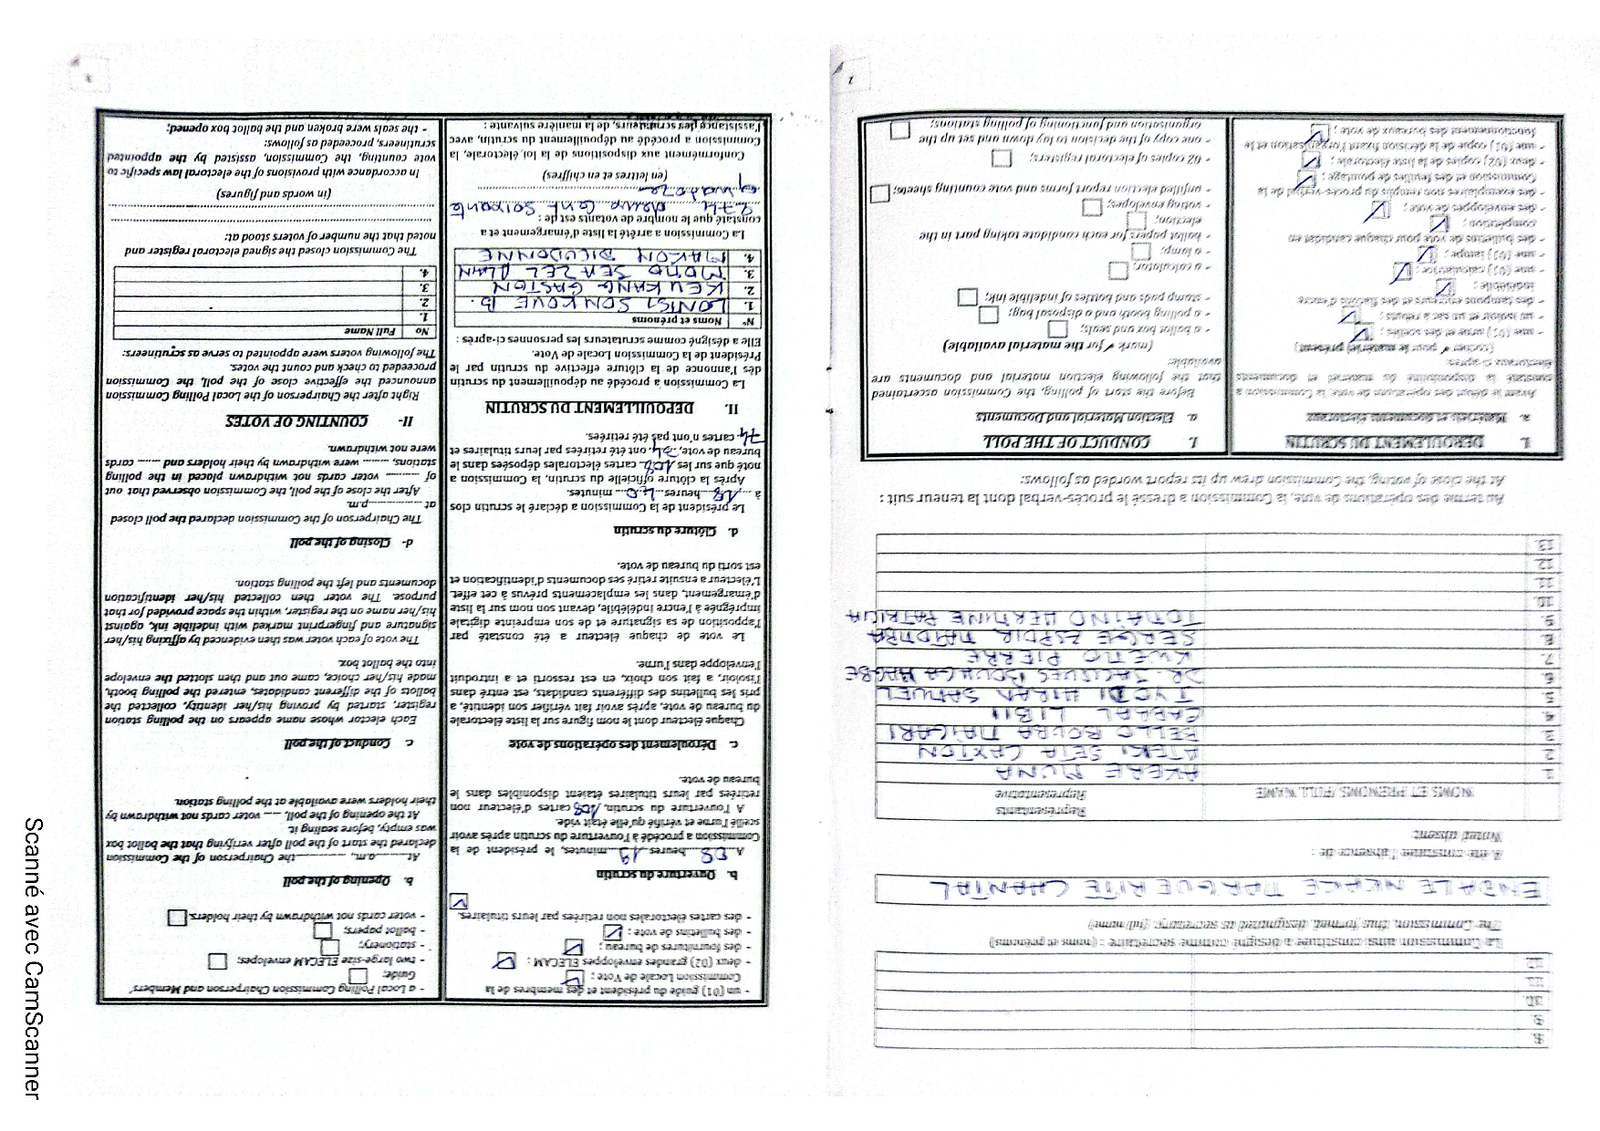 8.
9.
10.
11.
12.
La Commission ainsi constituée a désigné comme secrétaire : (noms et prénoms)
The Commission, thus formed, designated as secretary: (full name)
ENDALE NKAKE MARGUERITE CHANTAL
A été constatée l'absence de :
Noted absent:
NOMS ET PRENOMS /FULL NAME
Représentants
Representative
1 AKERE MUNA
2 ATEKI SETA CAXTON
3 BELLO BOUBA MAIGARI
4. CABRAL LIBII
5 IYODI HIRAM SAMUEL
6. DR. JACQUES BOUHGA HAGBE
7. KWEMO PIERRE
8. SERGE ESPOIR MATOMBA
9. TOMAINO HERMINE PATRICIA
10.
11.
12.
13.
Au terme des opérations de vote, la Commission a dressé le procès-verbal dont la teneur suit :
At the close of voting, the Commission drew up its report worded as follows:
I. DEROULEMENT DU SCRUTIN
a. Matériels et documents électoraux
Avant le début des opérations de vote, la Commission a
constaté la disponibilité du matériel et documents
électoraux ci-après:
(cocher ✓ pour le matériel présent)
- une (01) urne et des scellés ;
- un isoloir et un sac à rebuts ;
- des tampons encreurs et des flacons d'encre
indélébile ;
- une (01) calculatrice ;
- une (01) lampe ;
- des bulletins de vote pour chaque candidat en
compétition ;
- des enveloppes de vote ;
- des exemplaires non remplis du procès-verbal de la
Commission et des feuilles de pointage ;
- deux (02) copies de la liste électorale ;
- une (01) copie de la décision fixant l'organisation et le
fonctionnement des bureaux de vote ;
I. CONDUCT OF THE POLL
a. Election Material and Documents
Before the start of polling, the Commission ascertained
that the following election material and documents are
available:
(mark ✓ for the material available)
- a ballot box and seals;
- a polling booth and a disposal bag;
- stamp pads and bottles of indelible ink;
- a calculator;
- a lamp;
- ballot papers for each candidate taking part in the
election;
- voting envelopes;
- unfilled election report forms and vote counting sheets;
- 02 copies of electoral registers;
- one copy of the decision to lay down and set up the
organisation and functioning of polling stations;
2
- un (01) guide du président et des membres de la
Commission Locale de Vote ;
- deux (02) grandes enveloppes ELECAM ;
- des fournitures de bureau ;
- des bulletins de vote ;
- des cartes électorales non retirées par leurs titulaires.
b. Ouverture du scrutin
A 08 heures 19 minutes, le président de la
Commission a procédé à l'ouverture du scrutin après avoir
scellé l'urne et vérifié qu'elle était vide.
A l'ouverture du scrutin, 108 cartes d'électeur non
retirées par leurs titulaires étaient disponibles dans le
bureau de vote.
c. Déroulement des opérations de vote
Chaque électeur dont le nom figure sur la liste électorale
du bureau de vote, après avoir fait vérifier son identité, a
pris les bulletins des différents candidats, est entré dans
l'isoloir, a fait son choix, en est ressorti et a introduit
l'enveloppe dans l'urne.
Le vote de chaque électeur a été constaté par
l'apposition de sa signature et de son empreinte digitale
imprégnée à l'encre indélébile, devant son nom sur la liste
d'émargement, dans les emplacements prévus à cet effet.
L'électeur a ensuite retiré ses documents d'identification et
est sorti du bureau de vote.
d. Clôture du scrutin
Le président de la Commission a déclaré le scrutin clos
à 18 heures 40 minutes.
Après la clôture officielle du scrutin, la Commission a
noté que sur les 108 cartes électorales déposées dans le
bureau de vote, 34 ont été retirées par leurs titulaires et
74 cartes n'ont pas été retirées.
II. DEPOUILLEMENT DU SCRUTIN
La Commission a procédé au dépouillement du scrutin
dès l'annonce de la clôture effective du scrutin par le
Président de la Commission Locale de Vote.
Elle a désigné comme scrutateurs les personnes ci-après :
N° Noms et prénoms
1. LONTSI SONKOUE B.
2. KEUKANG GASTON
3. MOTTO SEAZEL ALAIN
4. MAKON DIEUDONNE
La Commission a arrêté la liste d'émargement et a
constaté que le nombre de votants est de :
274 deux cent soixante
quatorze
(en lettres et en chiffres)
Conformément aux dispositions de la loi, électorale, la
Commission a procédé au dépouillement du scrutin, avec
l'assistance des scrutateurs, de la manière suivante :
- a Local Polling Commission Chairperson and Members'
Guide;
- two large-size ELECAM envelopes;
- stationery;
- ballot papers;
- voter cards not withdrawn by their holders.
b. Opening of the poll
At ......a.m., .............. the Chairperson of the Commission
declared the start of the poll after verifying that the ballot box
was empty, before sealing it.
At the opening of the poll, ..... voter cards not withdrawn by
their holders were available at the polling station.
c. Conduct of the poll
Each elector whose name appears on the polling station
register, started by proving his/her identity, collected the
ballots of the different candidates, entered the polling booth,
made his/her choice, came out and then slotted the envelope
into the ballot box.
The vote of each voter was then evidenced by affixing his/her
signature and fingerprint marked with indelible ink, against
his/her name on the register, within the space provided for that
purpose. The voter then collected his/her identification
documents and left the polling station.
d- Closing of the poll
The Chairperson of the Commission declared the poll closed
at ...........p.m.
After the close of the poll, the Commission observed that out
of ......... voter cards not withdrawn placed in the polling
stations, ........ were withdrawn by their holders and ...... cards
were not withdrawn.
II- COUNTING OF VOTES
Right after the Chairperson of the Local Polling Commission
announced the effective close of the poll, the Commission
proceeded to check and count the votes.
The following voters were appointed to serve as scrutineers:
No Full Name
1.
2.
3.
4.
The Commission closed the signed electoral register and
noted that the number of voters stood at:
(in words and figures)
In accordance with provisions of the electoral law specific to
vote counting, the Commission, assisted by the appointed
scrutineers, proceeded as follows:
- the seals were broken and the ballot box opened;
3
Scanné avec CamScanner